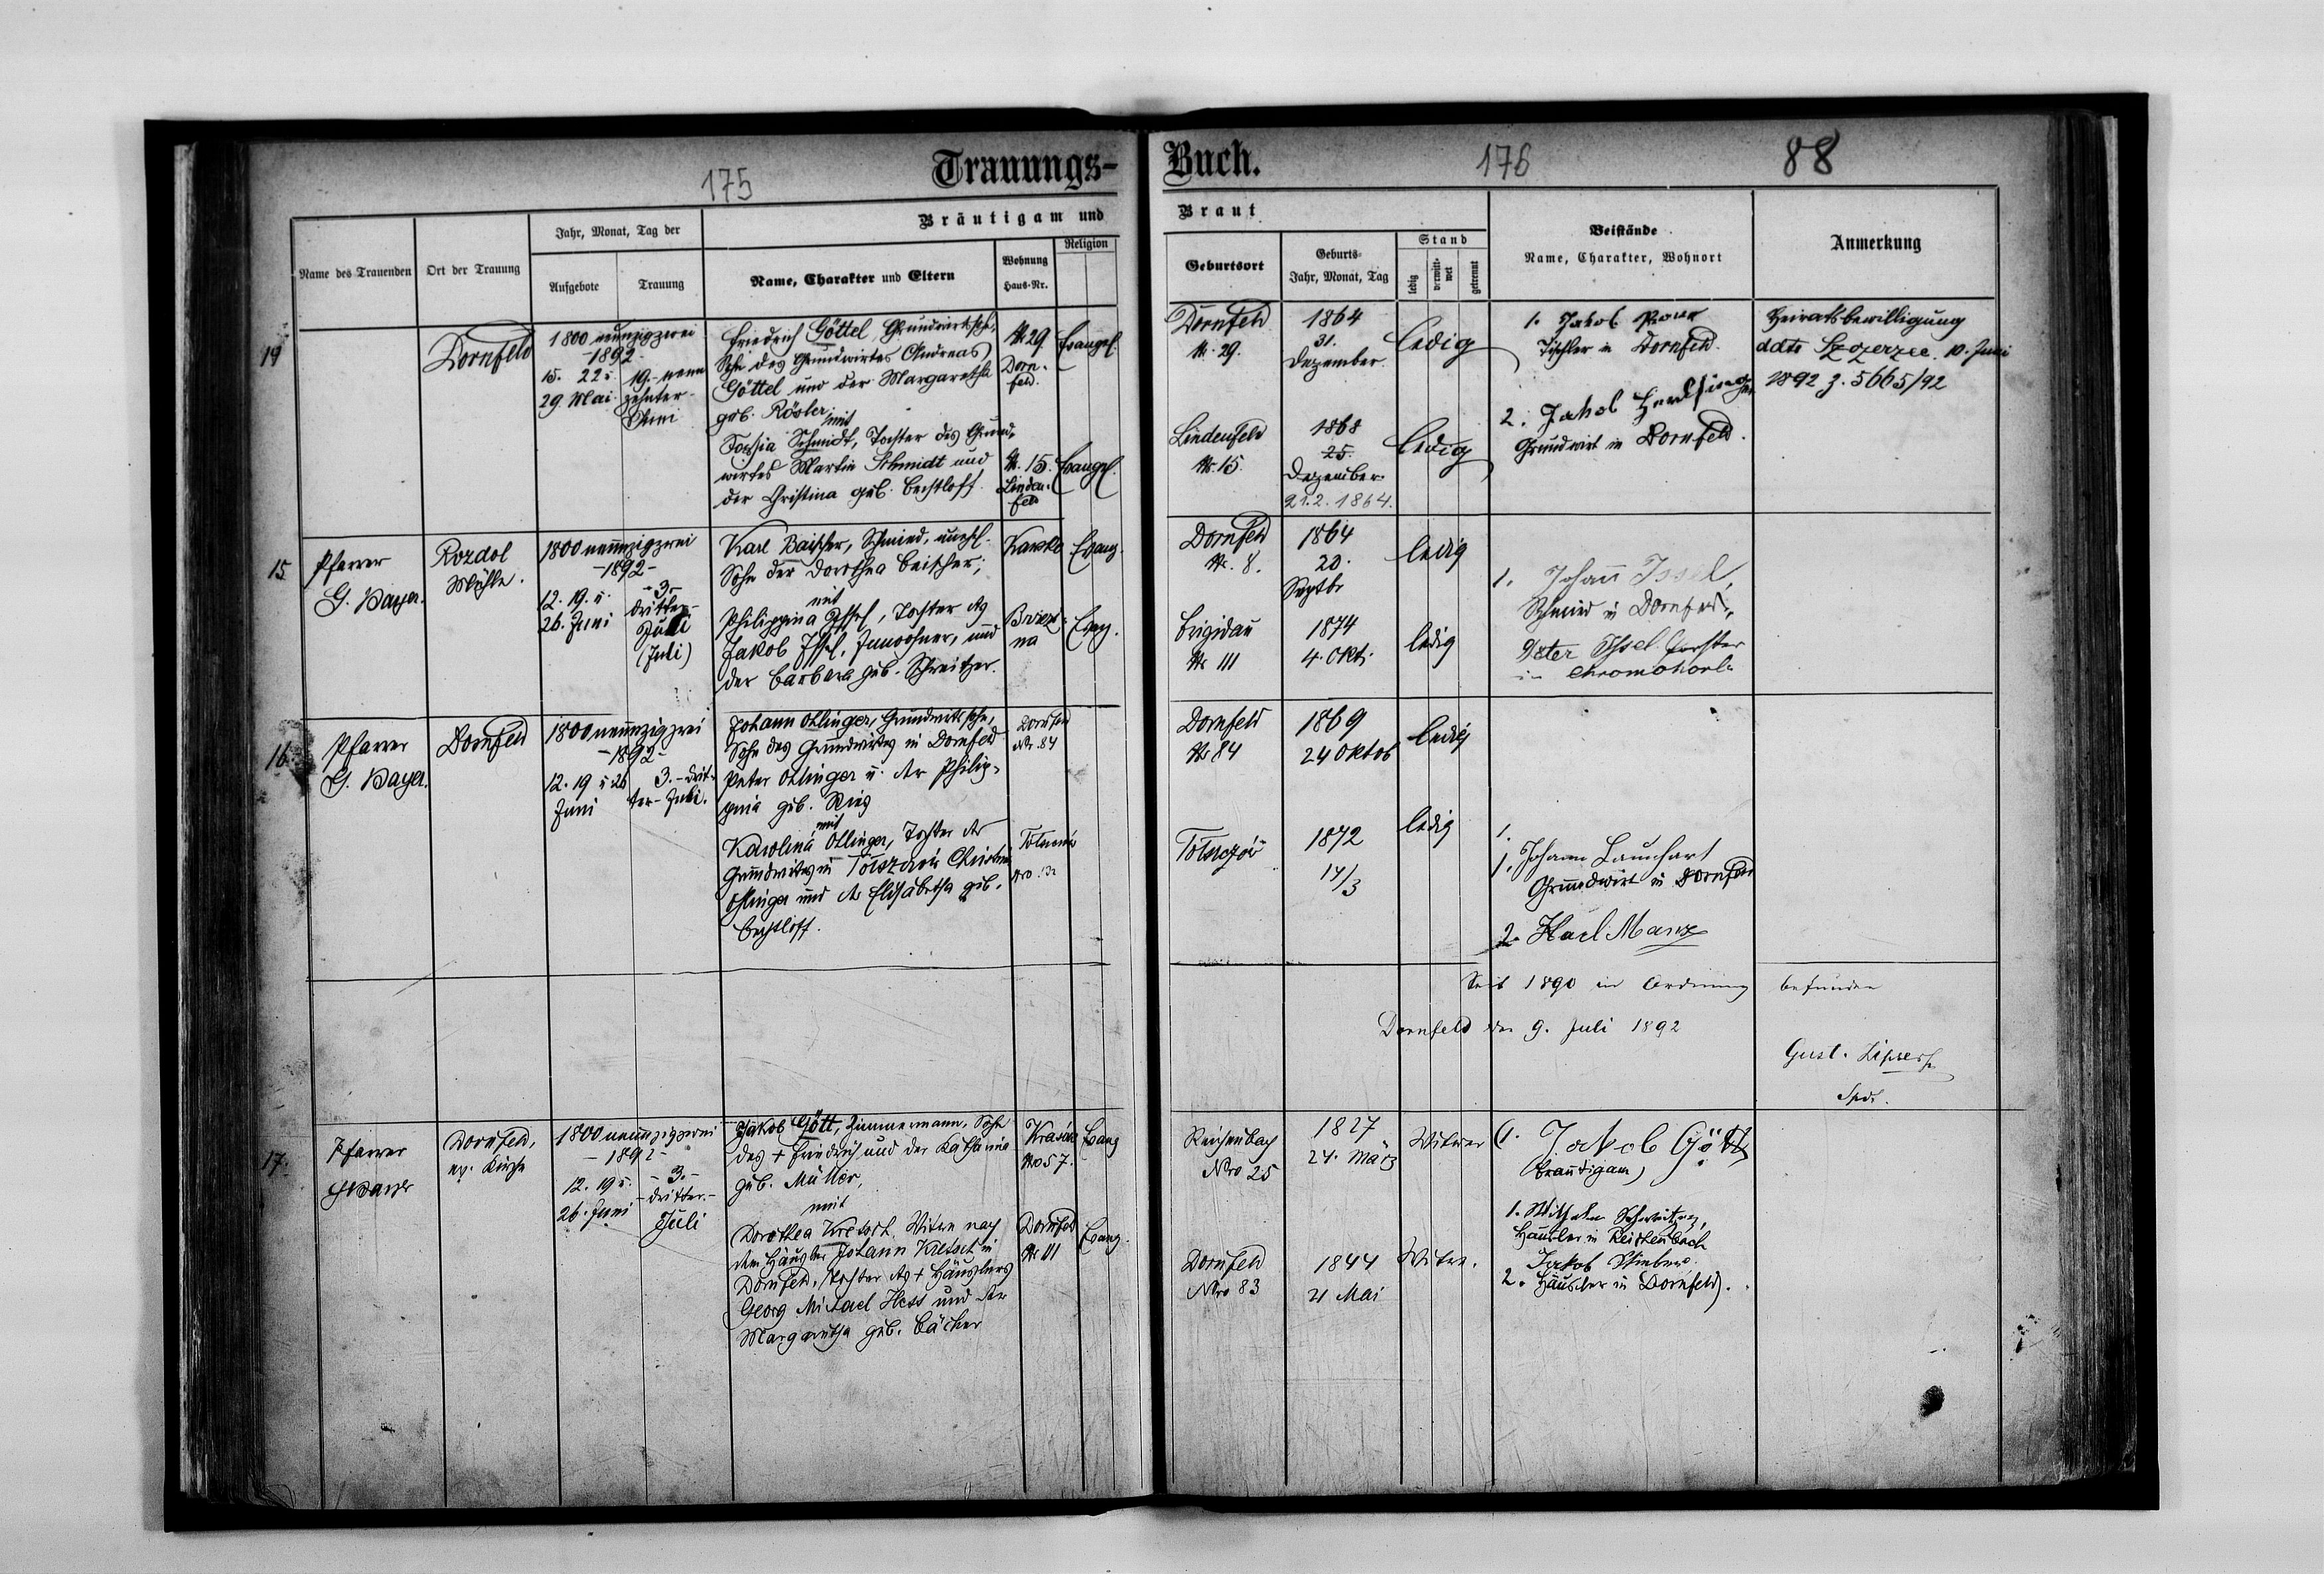 175
Trauungs-
Buch.
176
88
Name des Trauenden
Ort der Trauung
Jahr, Monat, Tag der
Aufgebote
Trauung
Bräutigam und
Name, Charakter und Eltern
Wohnung
Haus-Nr.
Religion
Braut
Geburtsort
Geburts-
Jahr, Monat, Tag
Stand
ledig
verwitt-
wet
getrennt
Beistände
Name, Charakter, Wohnort
Anmerkung
Dornfeld
1800 neunzigzwei
-1892-
15. 22 u.
29. Mai
19.- neun
zehnter-
Juni
Friedrich Göttel, Grundwirthssohn,
Sohn des Grundwirtes Andreas
Göttel und der Margaretha
geb. Rösler
mit
Schmidt, Tochter des Grund-
wirtes Martin Schmidt und
der Christina geb. Bechtloff.
Nr. 29
Dorn-
feld.
Evangel.
Nr. 15.
Linden-
feld
Evangel.
Dornfeld
Nr. 29.
1864
31.
Dezember
ledig
Lindenfeld
Nr. 15.
1868
25.
Dezember
21.2.1864.
ledig
1. Jakob
Tischler in Dornfeld.
2. Jakob
Grundwirt in Dornfeld.
Heiratsbewilligung
ddto Szczerzec. 10. Juni
1892 z. 5665/92
15
Pfarrer
G. Bayer.
Rozdol
Mühle.
1800 neunzigzwei
-1892-
12. 19. u.
26. Juni
-3.-
dritter-
Juli
(Juli)
Karl Baischer, Schmied, unehl.
Sohn der Dorothea Beischer;
mit
Philippina Issel, Tochter des
Jakob Issel, Inwohner, und
der Barbara geb. Schweitzer.
Evang.
Evang.
Dornfeld
Nr. 8.
1864
20.
Septbr
ledig
Brigidau
Nr 111
1874
4. Okt.
ledig
1. Johann Issel,
Schmied in Dornfeld,
Peter Issel Förster
in
16.
Pfarrer
G. Bayer.
Dornfeld
1800 neunzigzwei
-1892-
12. 19 u 26
Juni
3.- drit-
ter- Juli.
Johann Ottinger, Grundwirtssohn,
Sohn des Grundwirtes in Dornfeld
Peter Ottinger u. der Philip-
pina geb. Ries
mit
Karolina Ottinger, Tochter des
Grundwirtes in
Ottinger und der Elisabetha geb.
Bechtloff.
Dornfeld
Nr. 84
Dornfeld
Nr 84
1869
24 Oktob
ledig
1872
14/3
ledig
1.
1. Johann Launhart
Grundwirt in Dornfeld
2. Karl Manz
Seit 1890 in Ordnung befunden
Dornfeld den 9. Juli 1892
Gust.
17.
Pfarrer
Dornfeld,
ev. Kirche
1800 neunzigzwei
-1892-
12. 19 u.
26. Juni
-3.-
dritter.-
Juli
Jakob Gött, Zimmermann, Sohn
des + Friedrich und der Katharina
geb. Müller,
mit
Dorothea Kretsch, Witwe nach
dem Häusler Johann Kretsch in
Dornfeld, Tochter des + Häuslers
Georg Michael Hess und der
Margaretha geb. Bächer
No 57.
Evang
Dornfeld
Nr 111
Evang.
Reichenbach
Nro 25
1827
24. März
Witwer
Dornfeld
Nro 83
1844
21 Mai
Witwe.
(1. Jakob Gött
(Bräutigam)
1. Wilhelm Schweitzer,
Häusler in Reichenbach
Jakob
2. Häusler in Dornfeld).